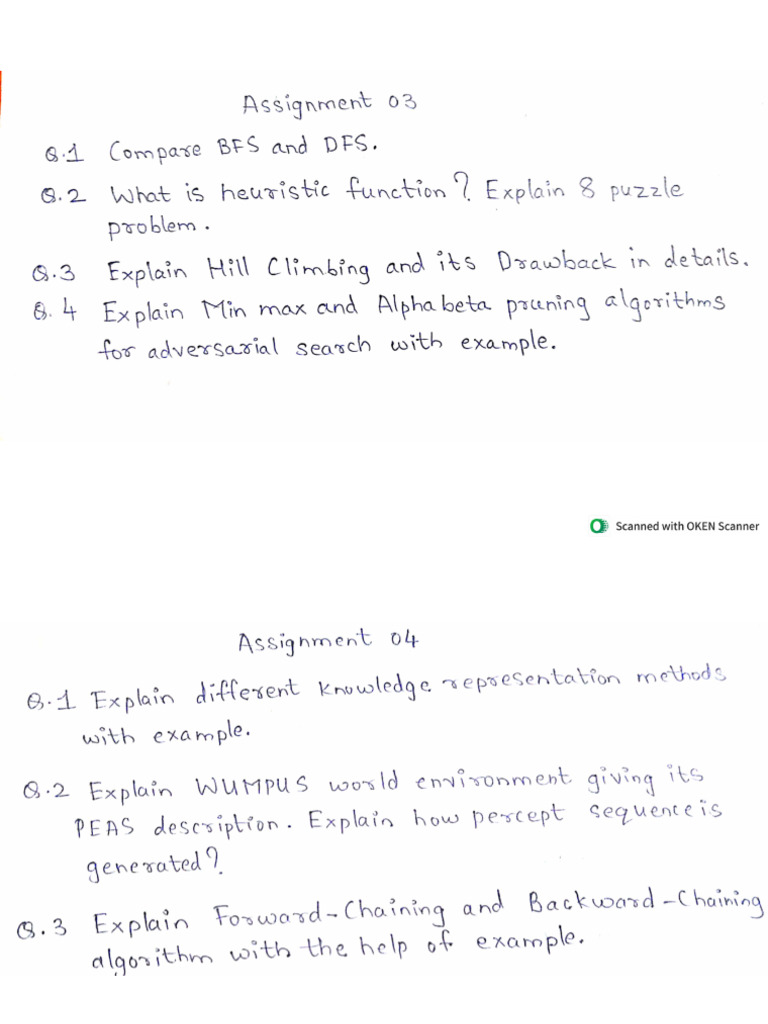 Assignment 03
Q.1 Compare BFS and DFS.
Q.2 What is heuristic function? Explain 8 puzzle
problem.
Q.3 Explain Hill Climbing and its Drawback in details.
Q.4 Explain Min max and Alphabeta pruning algorithms
for adversarial search with example.
Scanned with OKEN Scanner
Assignment 04
Q.1 Explain different knowledge representation methods
with example.
Q.2 Explain WUMPUS world environment giving its
PEAS description. Explain how percept sequence is
generated?
Q.3 Explain Forward-Chaining and Backward-Chaining
algorithm with the help of example.